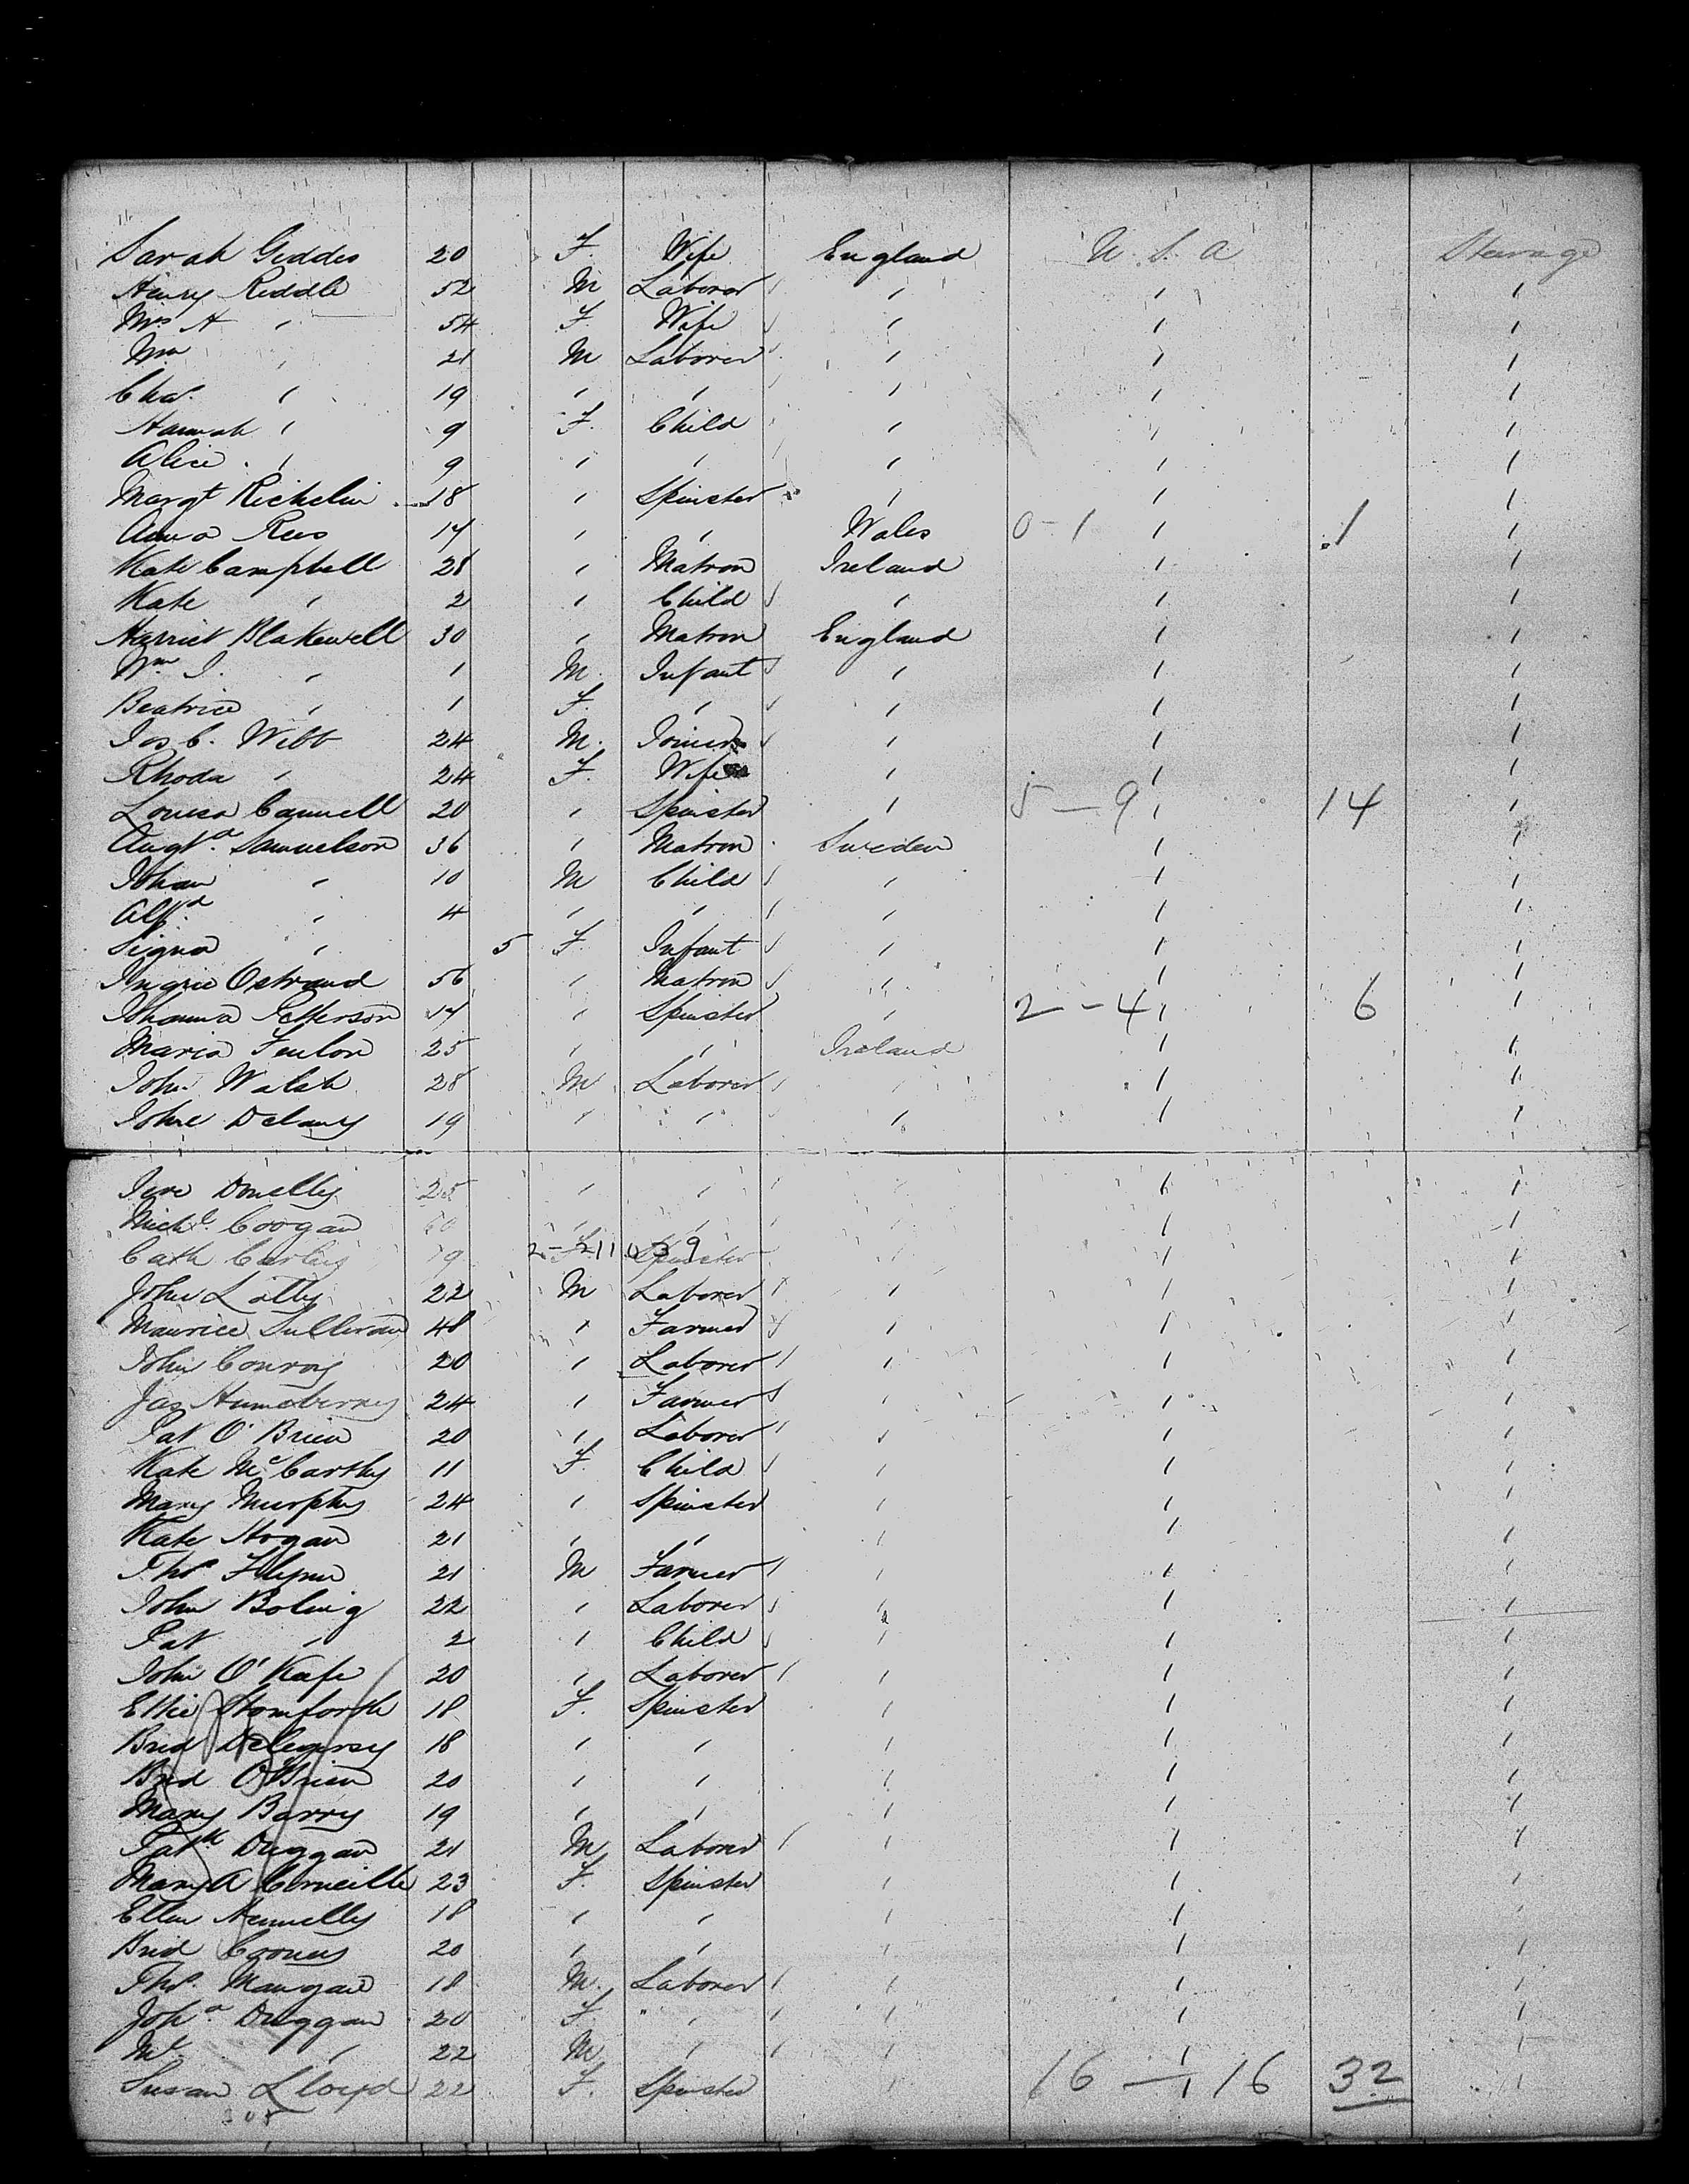 Sarah Geddes 20 F. Wife England U.S.A Steerage
Henry Riddle 52 M Laborer " " "
Mrs A " 54 F. Wife " " "
Wm " 21 M Laborer " " "
Chas. " 19 " " " " "
Hannah " 9 F. Child " " "
Alice " 9 " " " " "
Margt Richelin 18 " Spinster " " "
Anna Rees 17 " " Wales 0-1 " 1 "
Kate Campbell 28 " Matron Ireland " "
Kate " 2 " Child " " "
Harriet Blakewell 30 " Matron England " "
Wm J. " 1 M. Infant " " "
Beatrice " 1 F. " " " "
Jos C. Webb 24 M. Joiner " " "
Rhoda " 24 F. Wife " " "
Louisa Cannell 20 " Spinster " 5-9 " 14 "
Augta. Samuelson 36 " Matron Sweden " "
Johan " 10 M Child " " "
Alfd " 4 " " " " "
Signa " 5 F. Infant " " "
Ingrie Ostrand 56 " Matron " " "
Johanna Petterson 17 " Spinster " 2-4 " 6 "
Maria Fenlon 25 " " Ireland " "
John Walsh 28 M Laborer " " "
John Delany 19 " " " " "
Jere Donelly 25 " " " " "
Michl. Coogan 60 " " " " "
Cath 19 F. Spinster " " "
2-211039
John Lally 22 M Laborer " " "
Maurice Sullivan 48 " Farmer " " "
John Conroy 20 " Laborer " " "
Jas 24 " Farmer " " "
Pat O'Brien 20 " Laborer " " "
Kate McCarthy 11 F. Child " " "
Mary Murphy 24 " Spinster " " "
Kate Hogan 21 " " " " "
Thos Flynn 21 M Farmer " " "
John Boling 22 " Laborer " " "
Pat " 2 " Child " " "
John O'Kafe 20 " Laborer " " "
Ellie 18 F. Spinster " " "
Brid 18 " " " " "
Brid O'Brien 20 " " " " "
Mary Barry 19 " " " " "
Patk Duggan 21 M Laborer " " "
Mary A Corneille 23 F. Spinster " " "
Ellen Nunnelly 18 " " " " "
Brid Cooney 20 " " " " "
Thos. Mangan 18 M. Laborer " " "
Joha. Duggan 20 F. " " " "
Ml " 22 M " " " "
Susan Lloyd 22 F. Spinster " 16-16 " 32 "